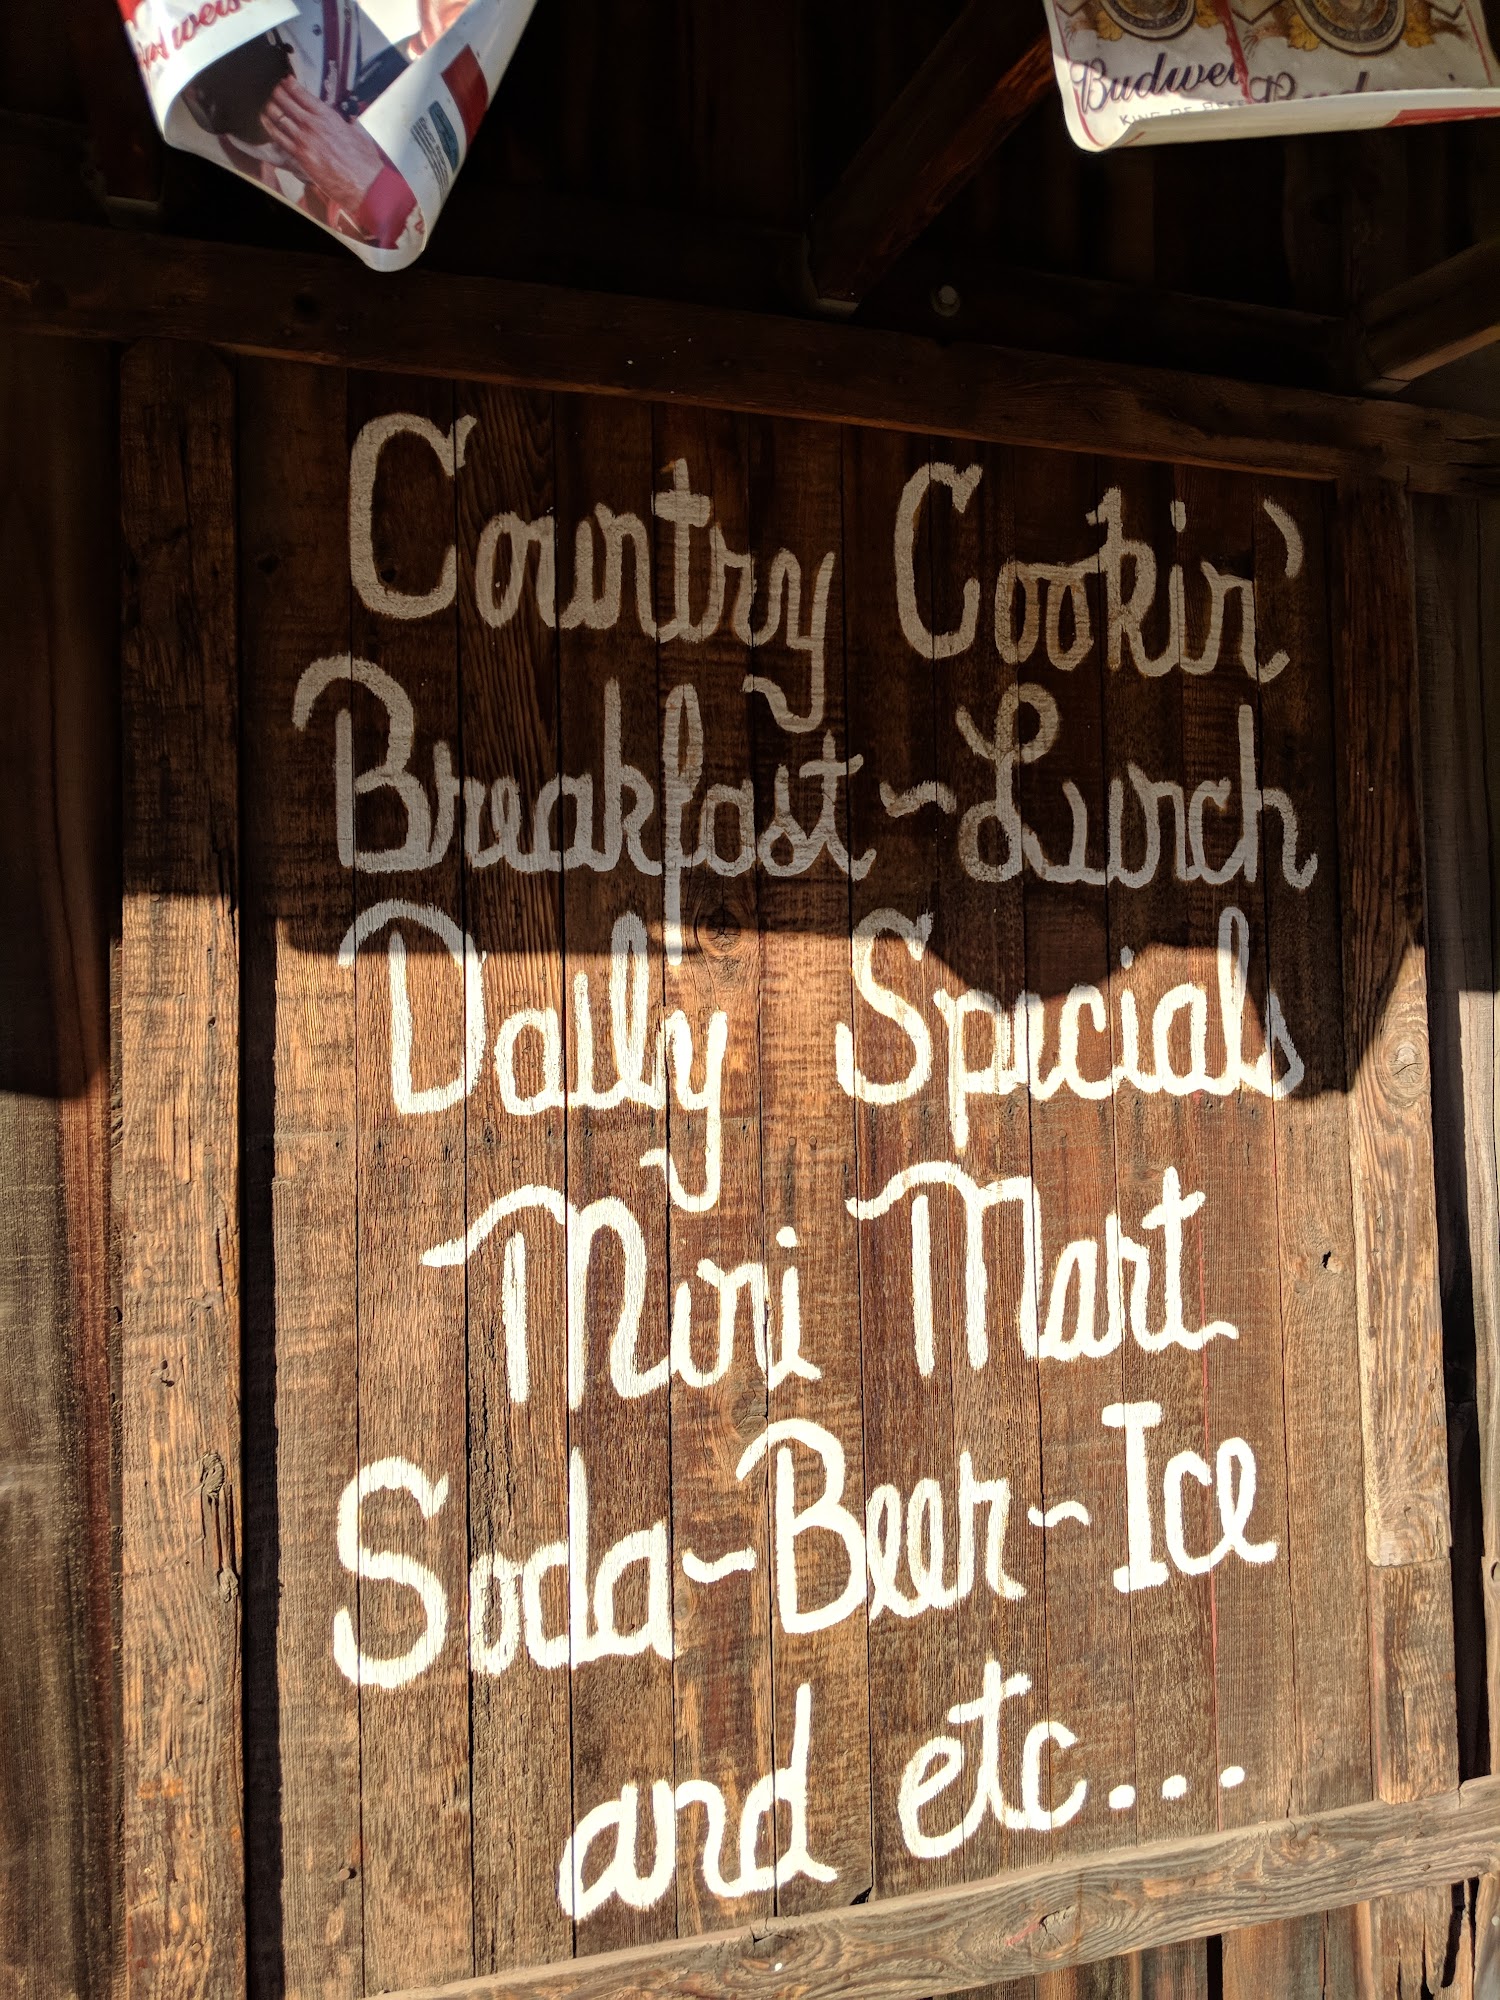 Budweiser
Budwei
KING OF BEE
Country Cookin'
Breakfast~Lunch
Daily Specials
Mini Mart
Soda~Beer~Ice
and etc...